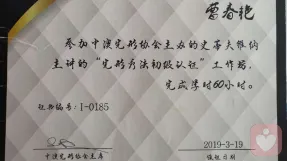 曹春艳
参加中澳完形协会主办的史蒂夫维纳
主讲的“完形疗法初级认证”工作坊,
完成学时60小时。
证书编号:I-0185
2019-3-19
中澳完形协会主席
颁证日期